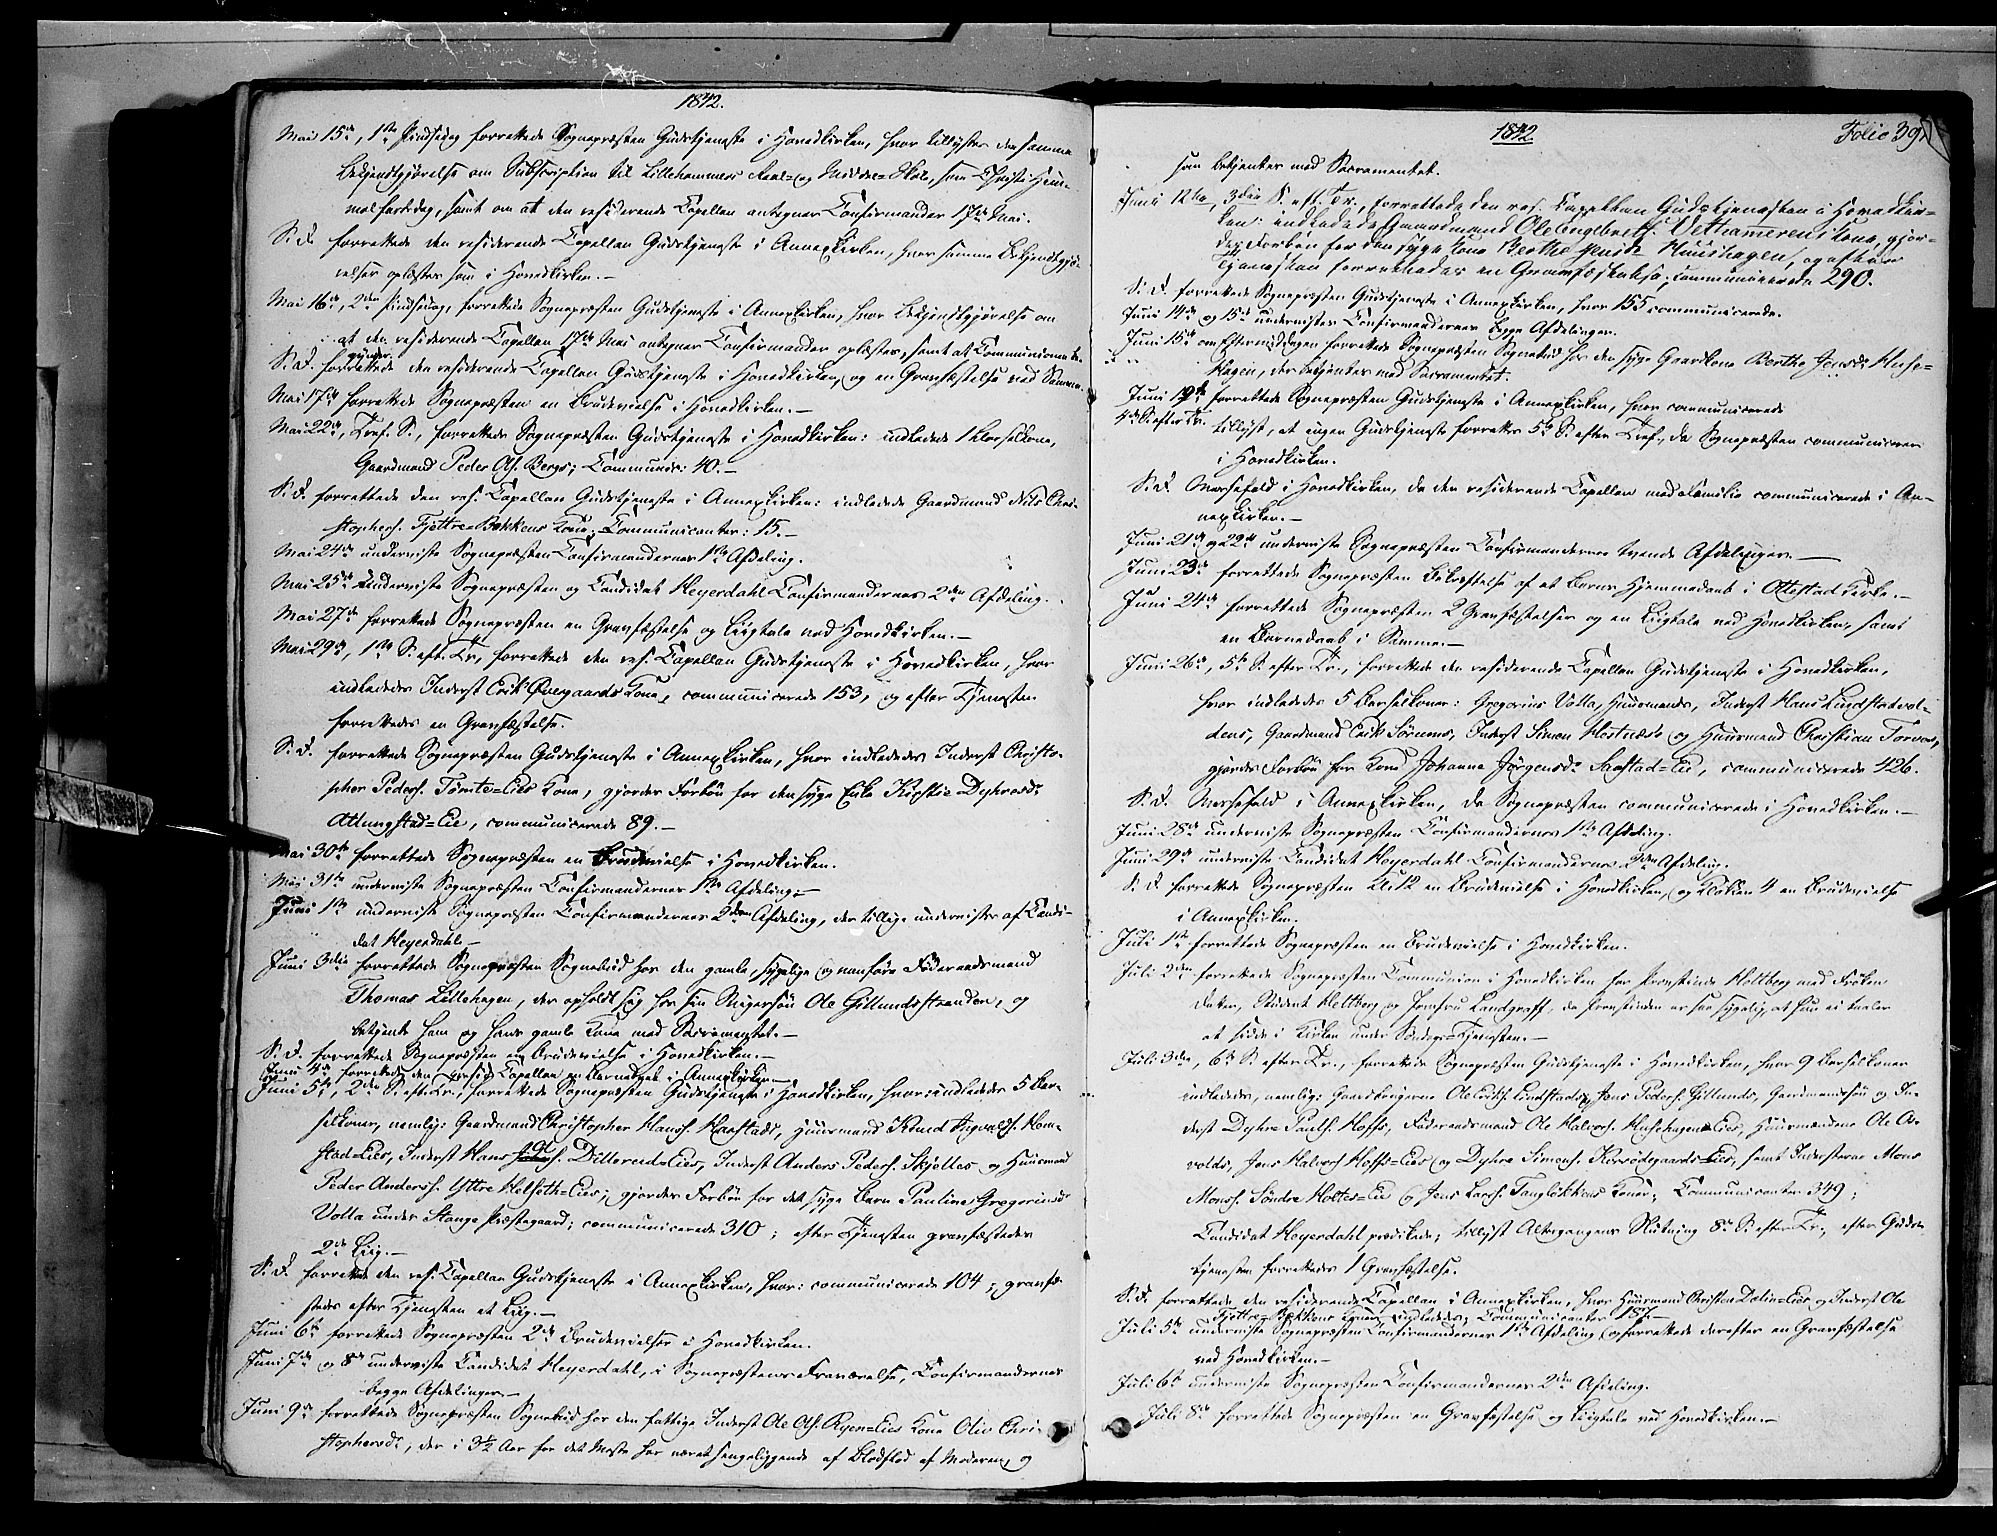 1842.
Mai 15de, 1ste Pindsedag forrettede Sognepræsten Gudstjeneste i Hovedkirken, hvor tillystes den samme
Bekjendtgjørelse om Subscription til Lillehammers Real- og Middel-Skole, som Christi Him-
melfartsdag, samt om at den residerende Capellan antegner Confirmander 17de Mai.
S. D. forrettede den residerende Capellan Gudstjeneste i Annexkirken, hvor samme Bekjendtgjø-
relser oplæstes som i Hovedkirken.-
Mai 16de, 2den Pindsedag, forrettede Sognepræsten Gudstjeneste i Annexkirken, hvor Bekjendtgjørelse om
at den residerende Capellan 17de Mai antegner Confirmander oplæstes, samt at Communionerne be-
gynder.
S. D. forrettede den residerende Capellan Gudstjeneste i Hovedkirken, og en Gravfæstelse ved Samme.
Mai 17de forrettede Sognepræsten en Brudevielse i Hovedkirken.-
Mai 22de, Tref. S., forrettede Sognepræsten Gudstjeneste i Hovedkirken: indledede 1 Barselkone,
Gaardmand Peder Ols. Bergs; Communic: 40.-
S. D. forrettede den res. Capellan Gudstjeneste i Annexkirken: indledede Gaardmand Nils Chri-
stophers. Tjettre-Bækkens Kone; Communicanter: 15.-
Mai 24de underviste Sognepræsten Confirmandernes 1ste Afdeling.
Mai 25de underviste Sognepræsten og Candidat Heyerdahl Confirmandernes 2den Afdeling.
Mai 27de forrettede Sognepræsten en Gravfæstelse og Liigtale ved Hovedkirken.-
Mai 29de, 1ste S. eft. Tr., forrettede den res. Capellan Gudstjeneste i Hovedkirken, hvor
indlededes Inderst Erik Øvergaards Kone, communicerede 153, og efter Tjenesten
forrettedes en Gravfæstelse.
S. D. forrettede Sognepræsten Gudstjeneste i Annexkirken, hvor indlededes Inderst Christo-
pher Peders. Tomte-Eies Kone, gjordes Forbøn for den syge Enke Kirstie Dyhresdr
Atlungstad-Eie, communicerede 89.-
Mai 30te forrettede Sognepræsten en Brudevielse i Hovedkirken.
Mai 31te underviste Sognepræsten Confirmandernes 1ste Afdeling.-
Juni 1ste underviste Sognepræsten Confirmandernes 2den Afdeling, der tillige undervistes af Candi-
dat Heyerdahl.-
Juni 3die forrettede Sognepræsten Sognebud hos den gamle, sygelige og vanføre Føderaadsmand
Thomas Lillehagen, der opholdt sig hos sin Svigersøn Ole Gillundsstranden, og
betjente ham og hans gamle Kone med Sacramentet.-
S. D. forrettede Sognepræsten en Brudevielse i Hovedkirken.-
Juni 4de forrettede den resid. Capellan en Barnedaab i Annexkirken.-
Juni 5te, 2den S. eft. Tr., forrettede Sognepræsten Gudstjeneste i Hovedkirken, hvor: indlededes 5 Bar-
selkoner, nemlig: Gaardmand Christopher Hanss. Harstads, Huusmand Knud Ingvalds. Hom-
stad-Eies, Inderst Hans Dillerud-Eies, Inderst Anders Peders. Skjelles og Huusmand
Peder Anders. Yttre Helseth-Eies; gjordes Forbøn for det syge Barn Pauline Gregoriusdr
Volla under Stange Præstegaard; communicerede 310; efter Tjenesten gravfæstedes
2de Liig.-
S. D. forrettede den res. Capellan Gudstjeneste i Annexkirken, hvor: communicerede 104; gravfæ-
stedes efter Tjenesten et Liig.-
Juni 6te forrettede Sognepræsten 2de Brudevielser i Hovedkirken.
Juni 7de og 8de underviste Candidat Heyerdahl, i Sognepræstens Fraværelse, Confirmandernes
begge Afdelinger.-
Juni 9de forrettede Sognepræsten Sognebud hos den fattige Inderst Ole Ols. Ryen-Eies Kone Oliv Chri-
stophersdr, der i 3½ Aar for det Meste har været sengeliggende af Blodflod af Moderen, og
1842. Folio 391
som betjentes med Sacramentet.
Juni 12te, 3die S. eft. Tr., forrettede den res. Capellan Gudstjenesten i Hovedkir-
ken: indledede Gaardmand Ole Engebretss. Vethammerens Kone, gjor-
des Forbøn for den syge Kone Berthe Jensdr Huusehagen, og efter
Tjenesten forrettedes en Gravfæstelse; communicerede 290.
S. D. forrettede Sognepræsten Gudstjeneste i Annexkirken, hvor 155 communicerede.
Juni 14de og 15de undervistes Confirmandernes begge Afdelinger.
Juni 15de om Eftermiddagen forrettede Sognepræsten Sognebud hos den syge Gaardkone Berthe Jensdr Huse-
hagen, der betjentes med Sacramentet.
Juni 19de forrettede Sognepræsten Gudstjeneste i Annexkirken, hvor communicerede
4de S. efter Tr. tillyst, at ingen Gudstjeneste forrettes 5te S. efter Tref., da Sognepræsten communicerer
i Hovedkirken.
S. D. Messefald i Hovedkirken, da den residerende Capellan med Familie communicerede i An-
nexkirken.-
Juni 21de og 22de underviste Sognepræsten Confirmandernes tvende Afdelinger.-
Juni 23de forrettede Sognepræsten Bekræftelse af et Barns Hjemmedaab i Ottestad Kirke.-
Juni 24de forrettede Sognepræsten 2 Gravfæstelser og en Liigtale ved Hovedkirken, samt
en Barnedaab i Samme.-
Juni 26de, 5te S. efter Tr., forrettede den residerende Capellan Gudstjeneste i Hovedkirken,
hvor indlededes 5 Barselkoner: Gregorius Volla, Huusmands, Inderst Hans Lindstadvol-
dens, Gaardmand Erik Sørums, Inderst Simon Hostnæs's og Huusmand Christian Torvas,
gjordes Forbøn for Kone Johanne Jørgensdr Saxstad-Eie, communicerede 426.
S. D. Messefald i Annexkirken, da Sognepræsten communicerede i Hovedkirken.-
Juni 28de underviste Sognepræsten Confirmandernes 1ste Afdeling.
Juni 29de underviste Candidat Heyerdahl Confirmandernes 2den Afdeling.
S. D. forrettede Sognepræsten Kl. 12 en Brudevielse i Hovedkirken, og Klokken 4 en Brudevielse
i Annexkirken.
Juli 1ste forrettede Sognepræsten en Brudevielse i Hovedkirken.
Juli 2den forrettede Sognepræsten Communion i Hovedkirken for Provstinde Heltberg med Frøken
Student Heltberg og Jomfru Landgraff, da Provstinden er saa sygelig, at hun ei taaler
at sidde i Kirken under Søndags-Tjenesten.-
Juli 3die, 6te S. efter Tr., forrettede Sognepræsten Gudstjeneste i Hovedkirken, hvor 9 Barselkoner
indlededes, nemlig: Gaardbrugerne Ole Eriks. Lindstads, Jens Peders. Gillunds, Gaardmandssøn og In-
derst Dyhre Pauls. Hoffs, Føderaadsmand Ole Halvors. Husehagen-Eies, Huusmændene Ole Ar-
volds, Jens Halvors. Hoffs-Eies og Dyhre Simens. Korsødegaards-Eies, samt Inderstene Mons
Monss. Søndre Holtes-Eie og Jens Larss. Tangløkkens Koner; Communicanter 349;
Candidat Heyerdahl prædikede; tillyst Altergangens Slutning 8de S. efter Tr.; efter Guds-
tjenesten forrettedes 1 Gravfæstelse.
S. D. forrettede den residerende Capellan i Annexkirken, hvor Huusmand Christen Dalin-Eies og Inderst Ole
Tjettre-Bækkens Koner indlededes; Communicanter 187.-
Juli 5te underviste Sognepræsten Confirmandernes 1ste Afdeling, og forrettede derefter en Gravfæstelse
ved Hovedkirken.-
Juli 6te underviste Sognepræsten Confirmandernes 2den Afdeling.
Juli 8de forrettede Sognepræsten en Gravfæstelse og Liigtale ved Hovedkirken.-